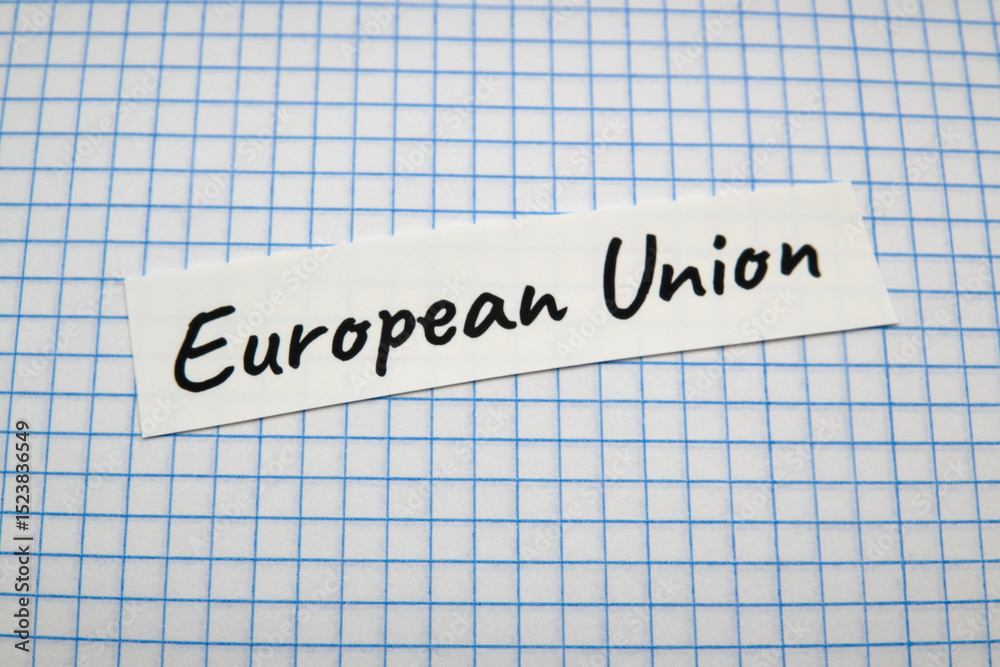 European Union
Adobe Stock | #1523836549